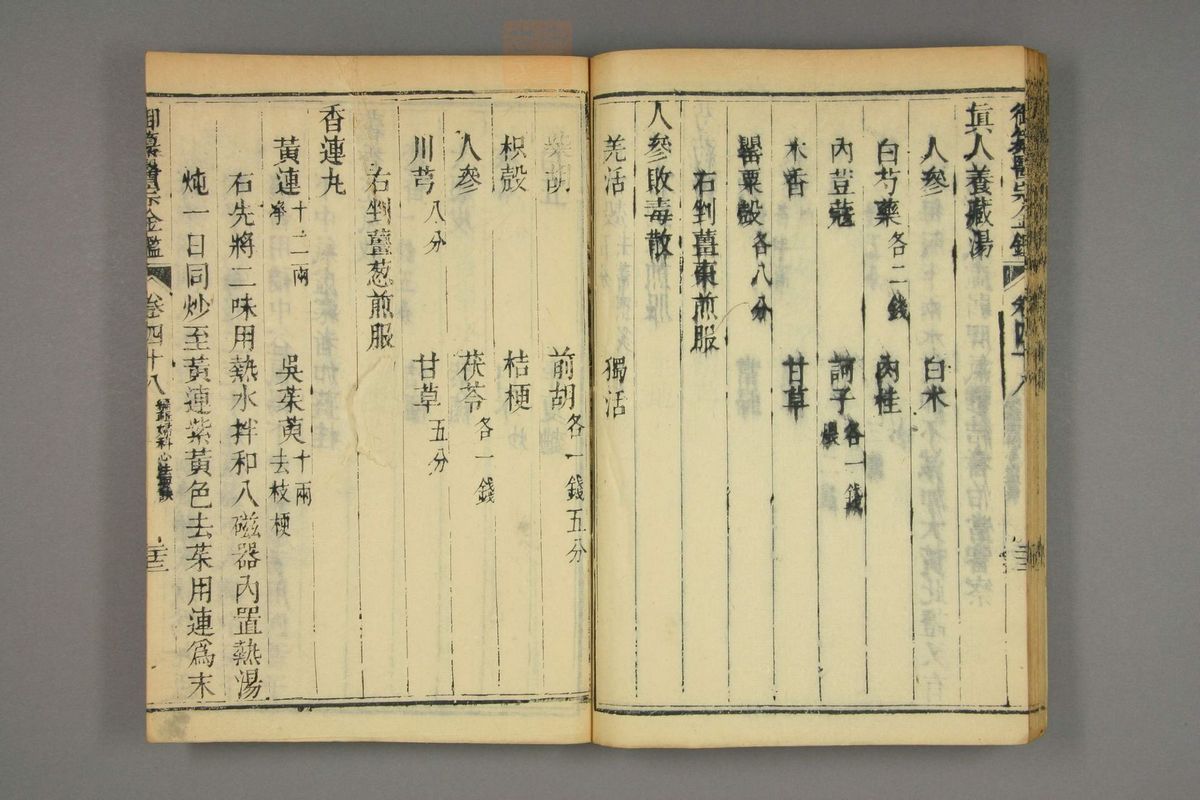 眞人養臟湯
人參 白朮
白芍藥各二錢 肉桂
肉荳蔻 訶子各一錢
木香 甘草
罌粟殼各八分
右剉薑棗煎服
人參敗毒散
羌活 獨活
柴胡 前胡各一錢五分
枳殼 桔梗
人參 茯苓各一錢
川芎八分 甘草五分
右剉薑葱煎服
香連丸
黃連十二兩淨 吳茱萸十兩去枝梗
右先將二味用熱水拌和入磁器內置熱湯
炖一日同炒至黃連紫黃色去茱用連爲末
御纂醫宗金鑑 卷四十八 編輯婦科心法要訣 二十三